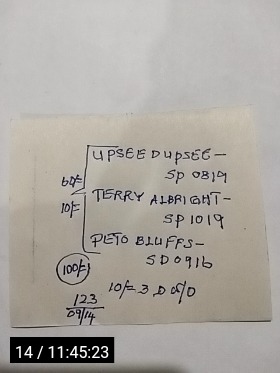 UPSEEDUPSEE-
SP 0819
60/=
TERRY ALBRIGHT-
10/=
SP 1019
PETO BLUFFS-
SD 0916
100/=
10/= 3 D
123
09/14
14 / 11:45:23